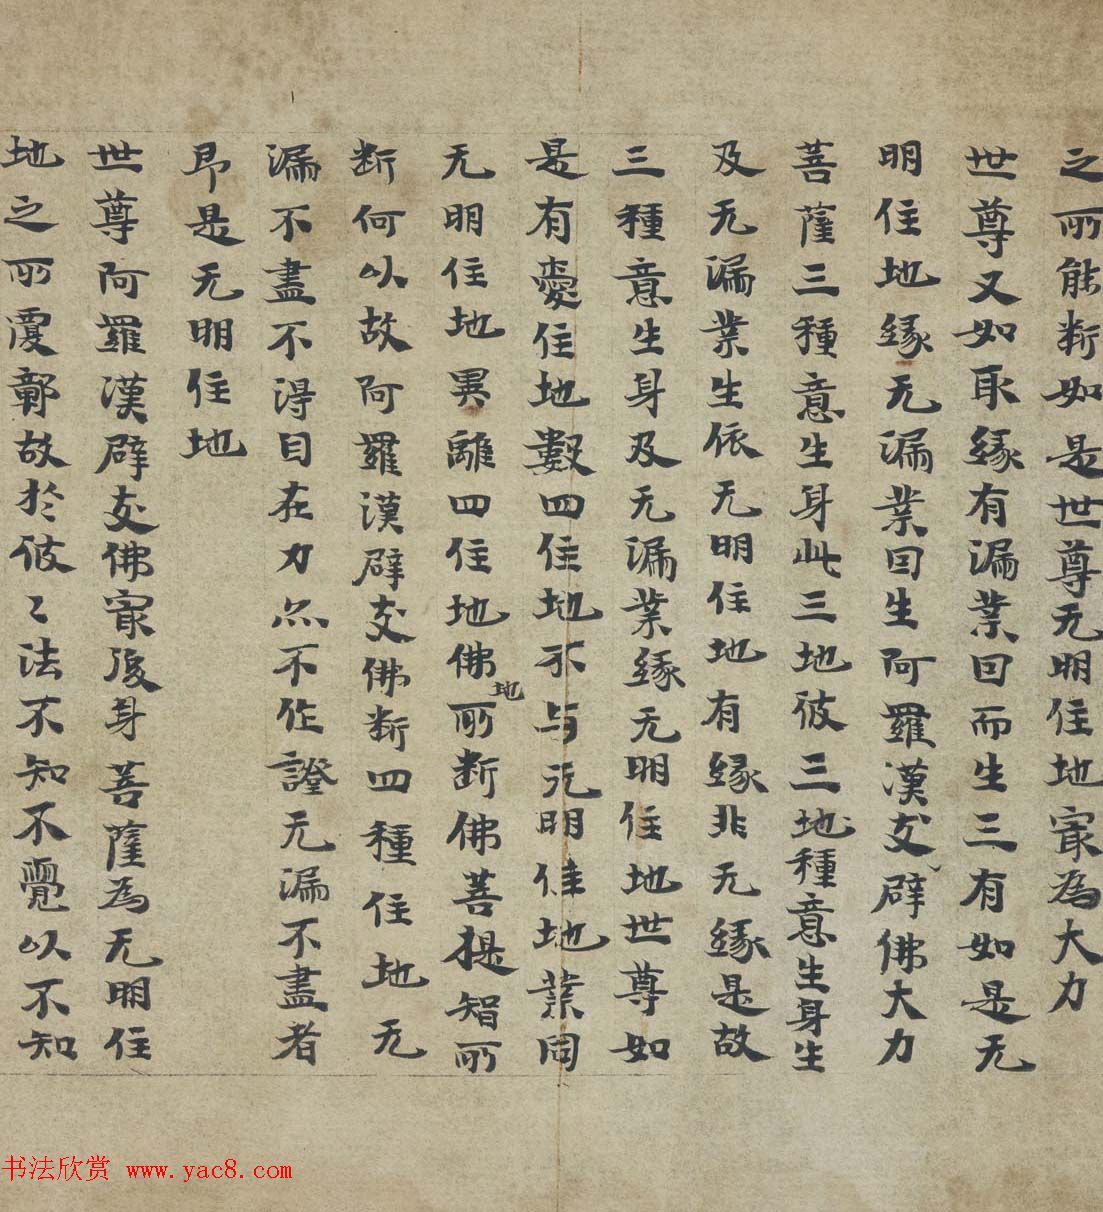 之所能断如是世尊无明住地冣為大力
世尊又如取緣有漏業因而生三有如是无
明住地緣无漏業因生阿羅漢支辟佛大力
菩薩三種意生身此三地彼三地種意生身生
及无漏業生依无明住地有緣非无緣是故
三種意生身及无漏業緣无明住地世尊如
是有愛住地數四住地不与无明住地業同
无明住地異離四住地佛地所断佛菩提智所
断何以故阿羅漢辟支佛断四種住地无
漏不盡不得自在力亦不作證无漏不盡者
即是无明住地
世尊阿羅漢辟支佛冣後身菩薩為无明住
地之所覆鄣故於彼〻法不知不覺以不知
书法欣赏 www.yac8.com